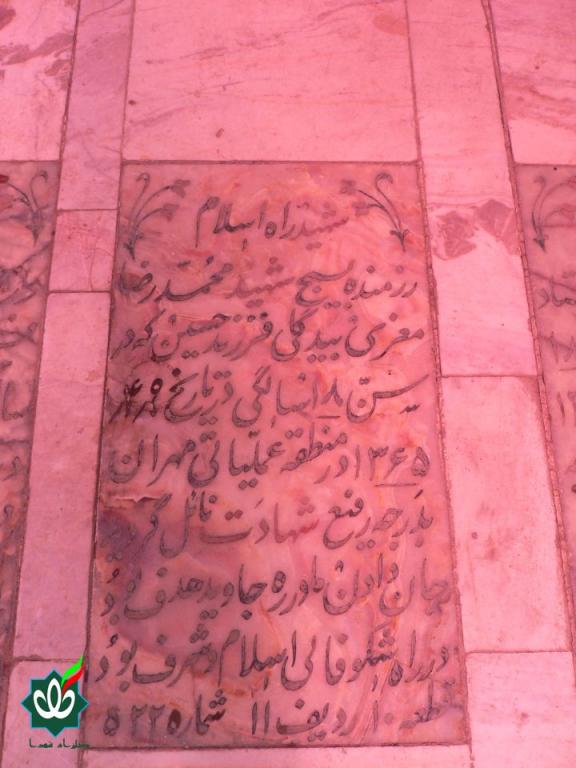 شهید راه اسلام
رزمنده بسیج شهید محمد رضا
مغزی بیدگلی فرزند حسین که در
سن ۱۸ سالگی در تاریخ
۱۳۶۵ در منطقه عملیاتی مهران
بدرجه رفیع شهادت نائل گردید
جان دادن ما و ره جاوید هدف بود
در راه شکوفائی اسلام و شرف بود
قطعه ۱ ردیف ۱۱ شماره ۵۲۲۵